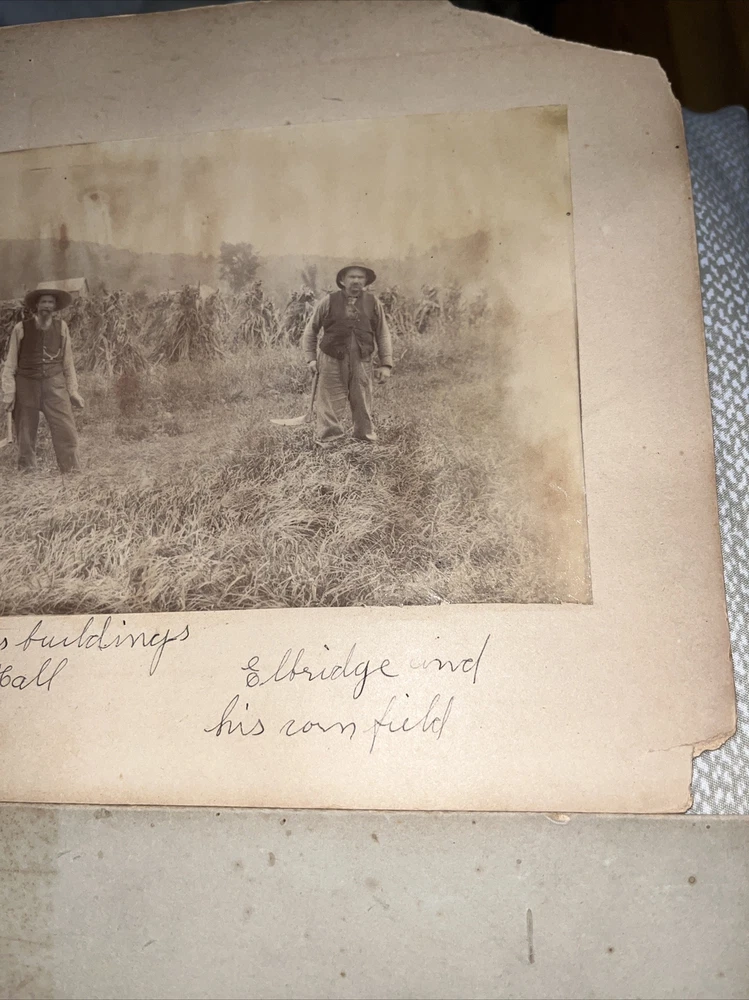 s buildings
Hall
Elbridge and
his corn field